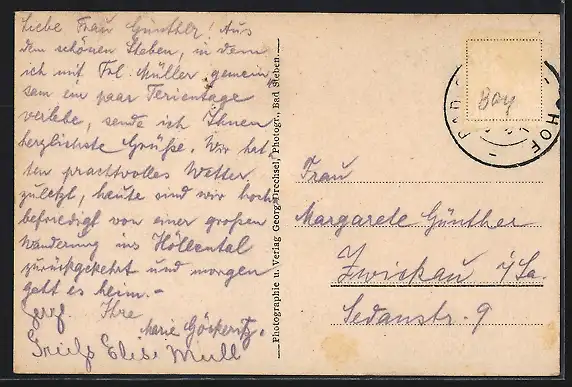 Liebe Frau Günther! Aus
dem schönen Steben, in dem
ich mit Frl. Müller gemein-
sam ein paar Ferientage
verlebe, sende ich Ihnen
herzlichste Grüße. Wir hat-
ten prachtvolles Wetter
zuletzt, heute sind wir hoch
befriedigt von einer großen
Wanderung ins Höllental
zurückgekehrt und morgen
geht es heim.–
Herzl. Ihre
Marie Göckeritz.
Elise Müll
Photographie u. Verlag Georg Drechsel, Photogr., Bad Steben.
Bay
BAD HOF
Frau
Margarete Günther
Zwickau i/Sa.
Sedanstr. 9